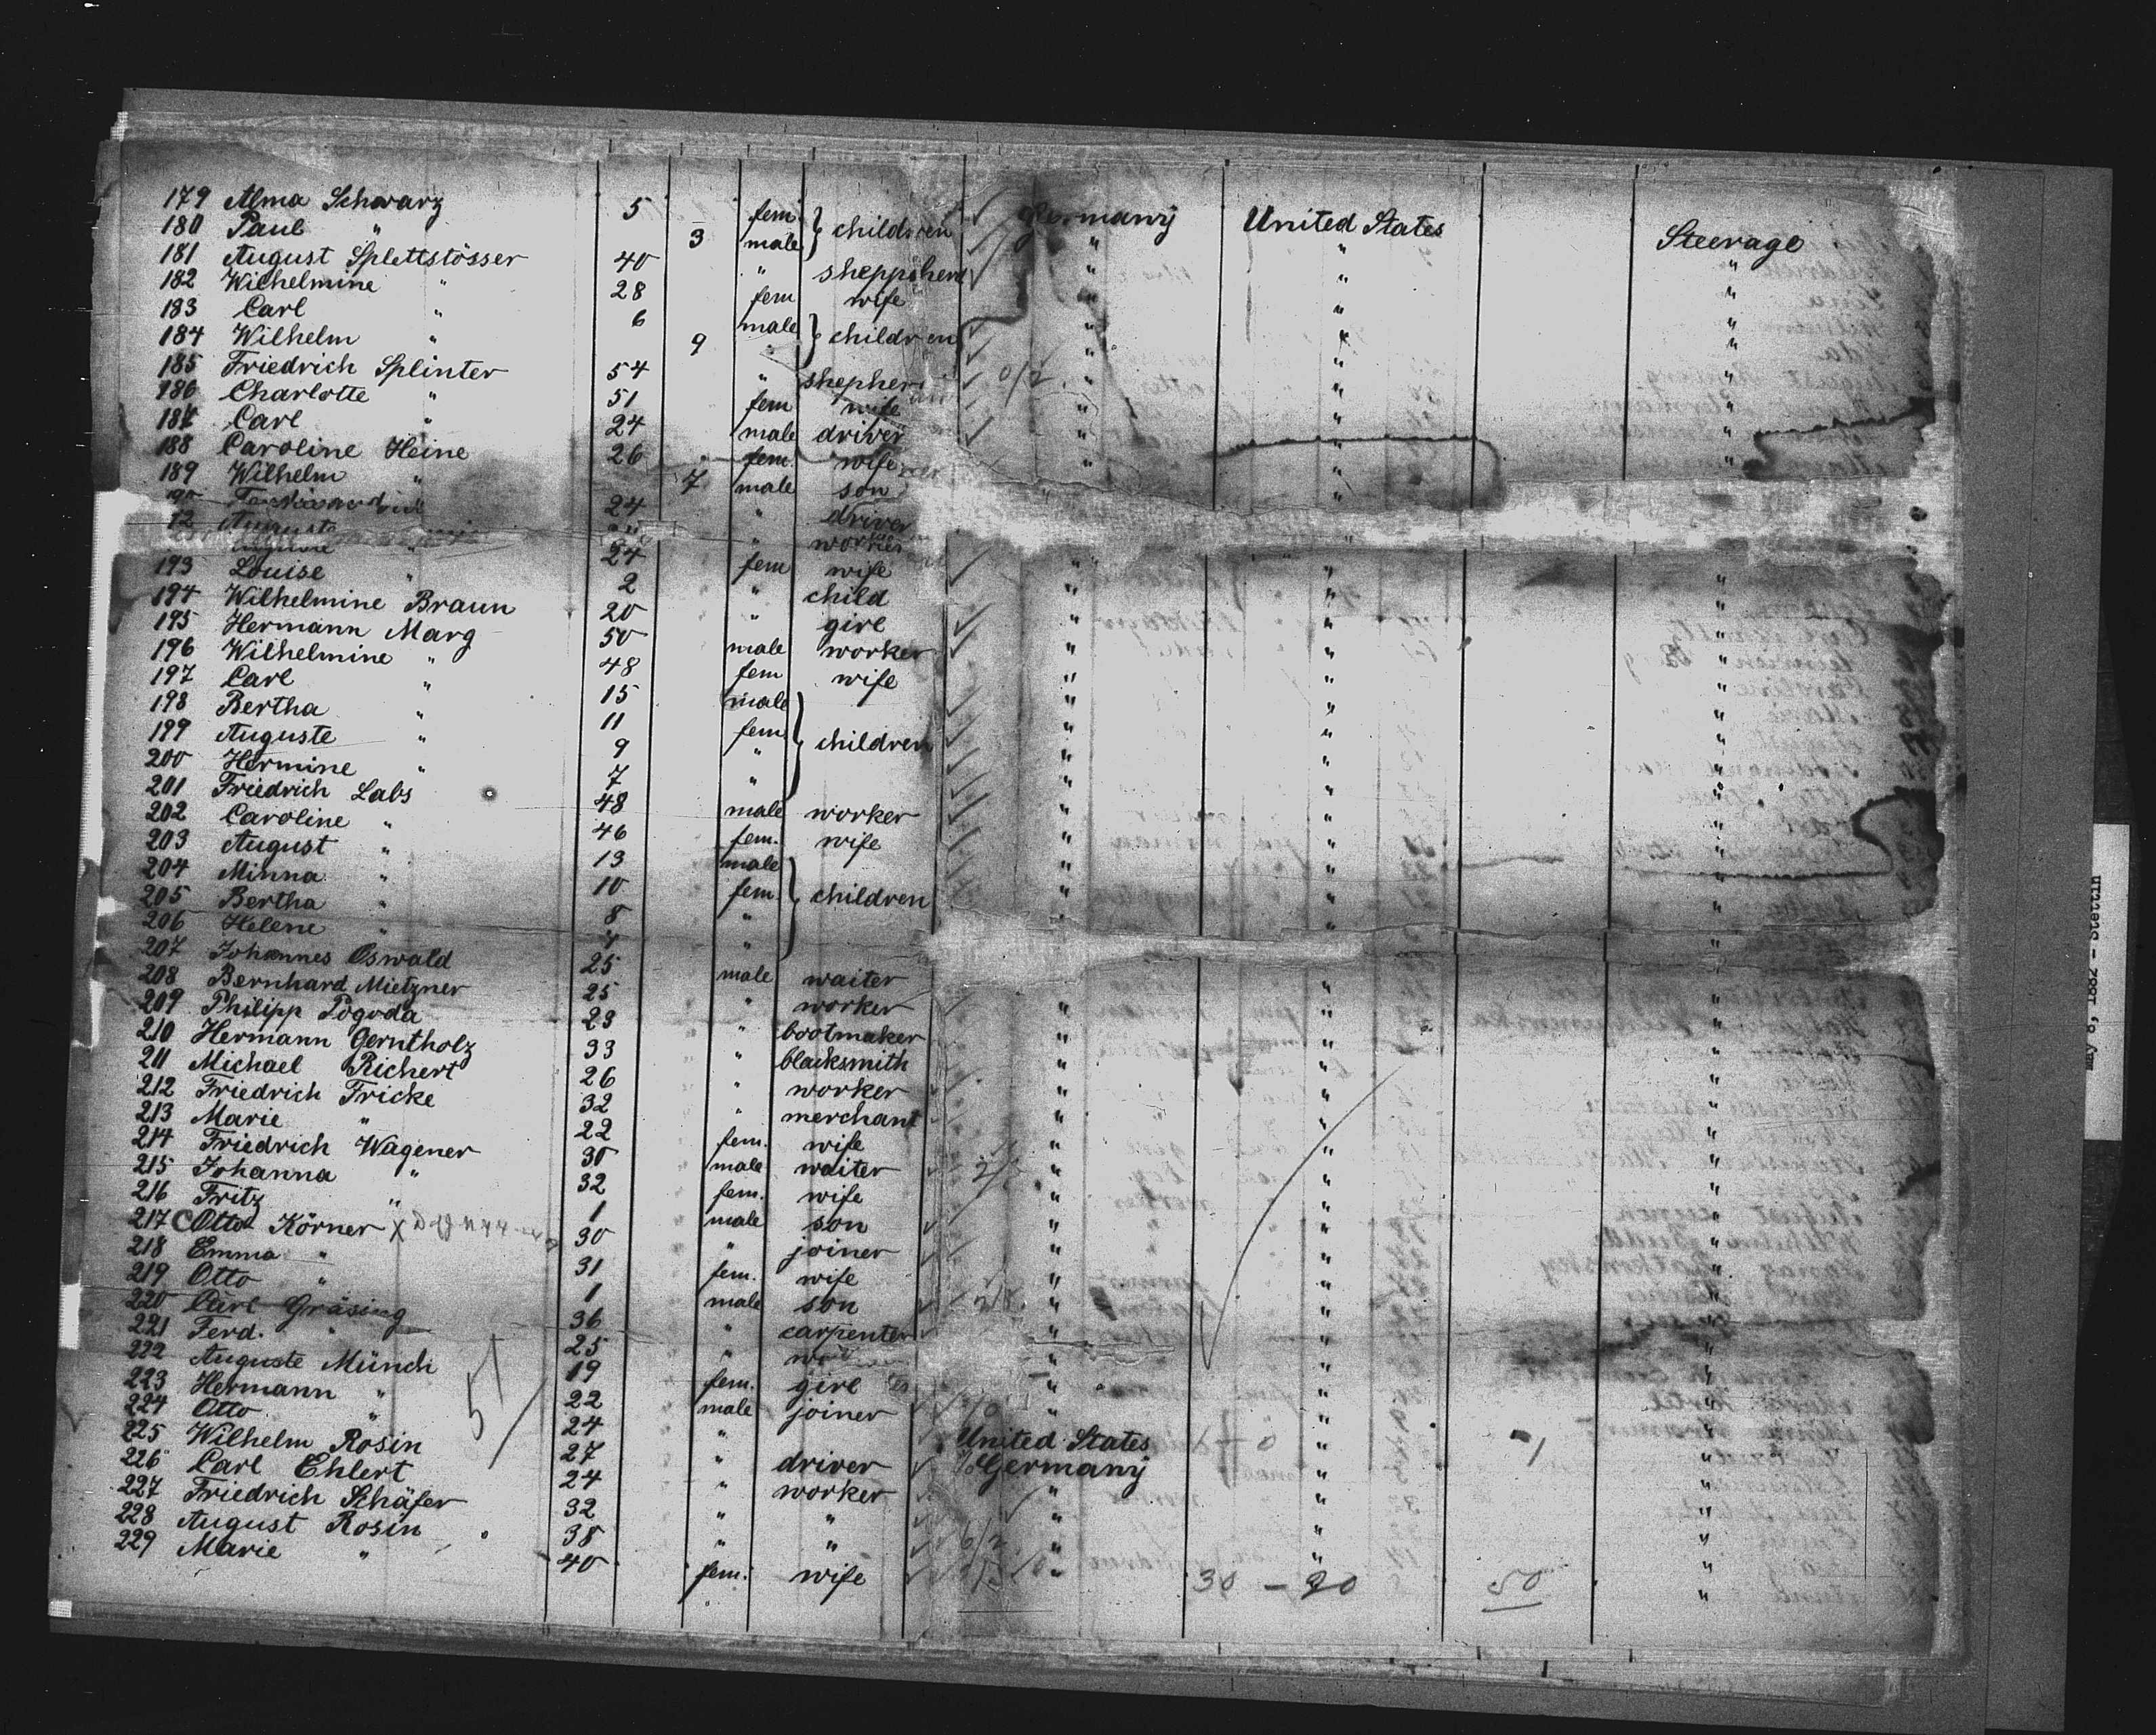 179 Alma Schwarz 5 fem. children Germany United States Steerage
180 Paul " 3 male " " "
181 August Splettstösser 40 " sheppherd " " "
182 Wilhelmine " 28 fem wife " " "
183 Carl " 6 male children " " "
184 Wilhelm " 9 " " " "
185 Friedrich Splinter 54 " shepherd " " "
186 Charlotte " 51 fem wife " " "
187 Carl " 24 male driver " " "
188 Caroline Heine 26 fem. wife " "
189 Wilhelm " 7 male son "
24 " driver
Auguste " worker
24 fem wife " " "
193 Louise " 2 " child " "
194 Wilhelmine Braun 20 " girl " " "
195 Hermann Marg 50 male worker " " "
196 Wilhelmine " 48 fem wife " " "
197 Carl " 15 male children " " "
198 Bertha " 11 fem. " " "
199 Auguste " 9 " " " "
200 Hermine " 7 " " " "
201 Friedrich Labs 48 male worker " " "
202 Caroline " 46 fem. wife " " "
203 August " 13 male children " " "
204 Minna " 10 fem. " " "
205 Bertha " 8 " " "
206 Helene " "
207 Johannes Oswald 25 male waiter " "
208 Bernhard Mietzner 25 " worker " " "
209 Philipp Pogoda 23 " bootmaker " " "
210 Hermann Gerntholz 33 " blacksmith " " "
211 Michael Richert 26 " worker " " "
212 Friedrich Fricke 32 " merchant " " "
213 Marie " 22 fem. wife " " "
214 Friedrich Wagener 30 male waiter " " "
215 Johanna " 32 fem. wife " " "
216 Fritz " 1 male son " " "
217 Otto Körner 30 " joiner " " "
218 Emma " 31 fem. wife " " "
219 Otto " 1 male son " " "
220 Carl Gräsing 36 " carpenter " " "
221 Ferd. " 25 " " " "
222 Auguste Münch 19 fem. girl " " "
223 Hermann " 22 male joiner " " "
224 Otto " 24 " United States " "
225 Wilhelm Rosin 27 " driver Germany " "
226 Carl Ehlert 24 " worker " " "
227 Friedrich Schäfer 32 " " " " "
228 August Rosin 38 " " " " "
229 Marie " 40 fem. wife " "
51
30 - 20 50
May 8, 1882 - Stettin